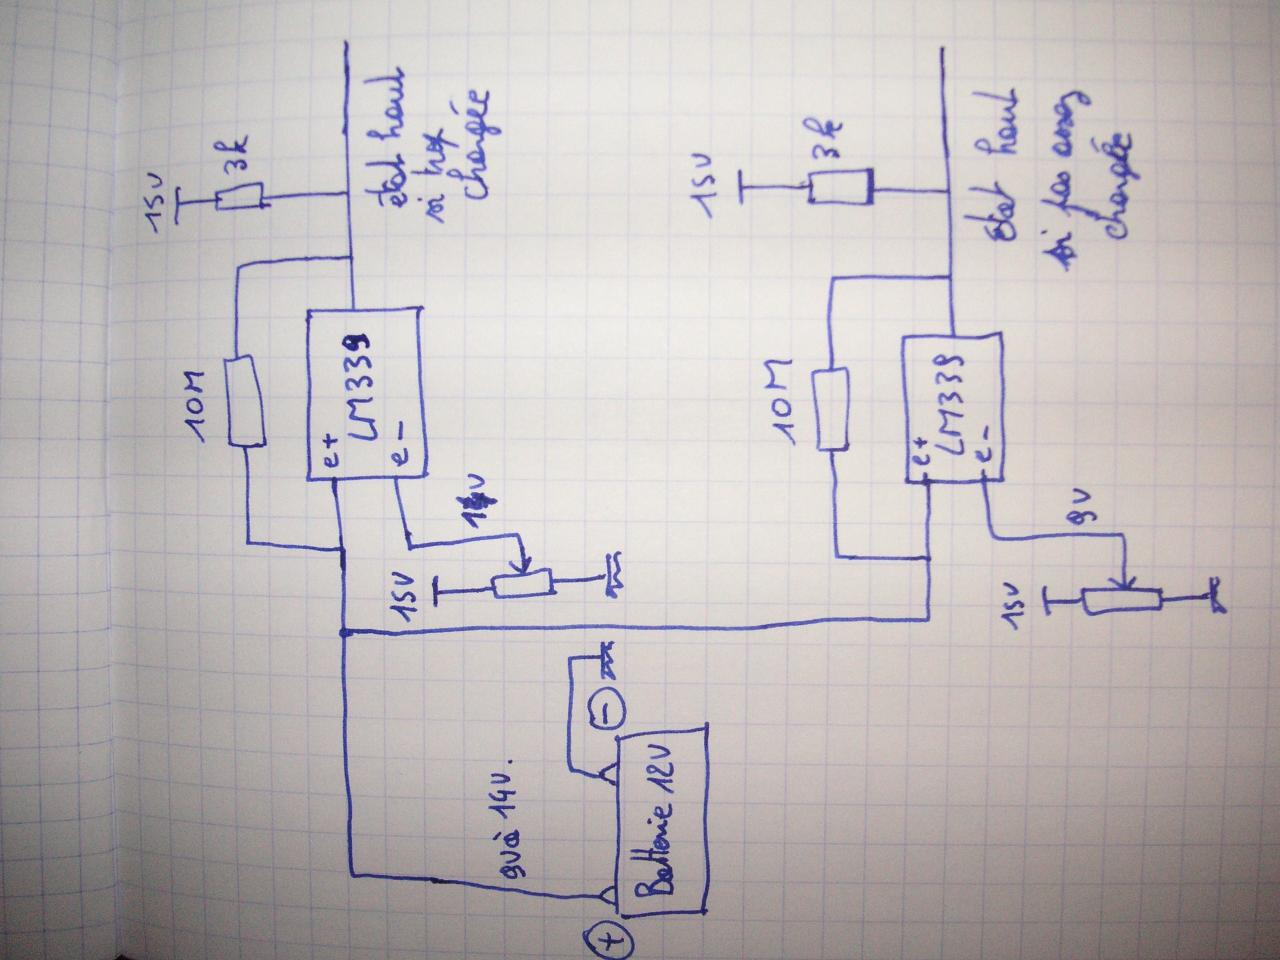 15V
3k
état haut
si trop
chargée
10M
LM339
e+
e-
15V
15V
3k
état haut
si pas assez
chargée
10M
LM339
e+
e-
9V
15V
9V à 14V.
Batterie 12V
-
+